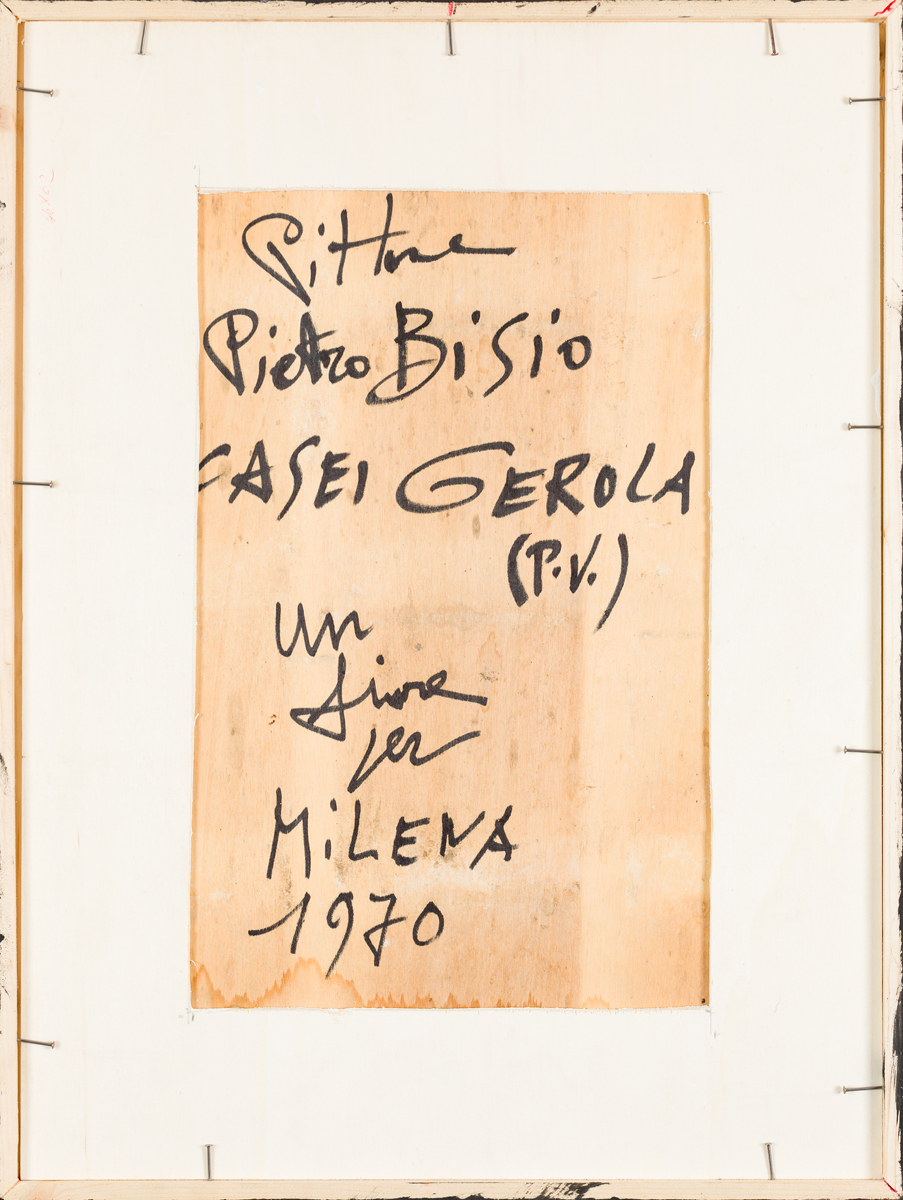 Pittore
Pietro Bisio
CASEI GEROLA
(P.V.)
un
fiore
per
MiLENA
1970